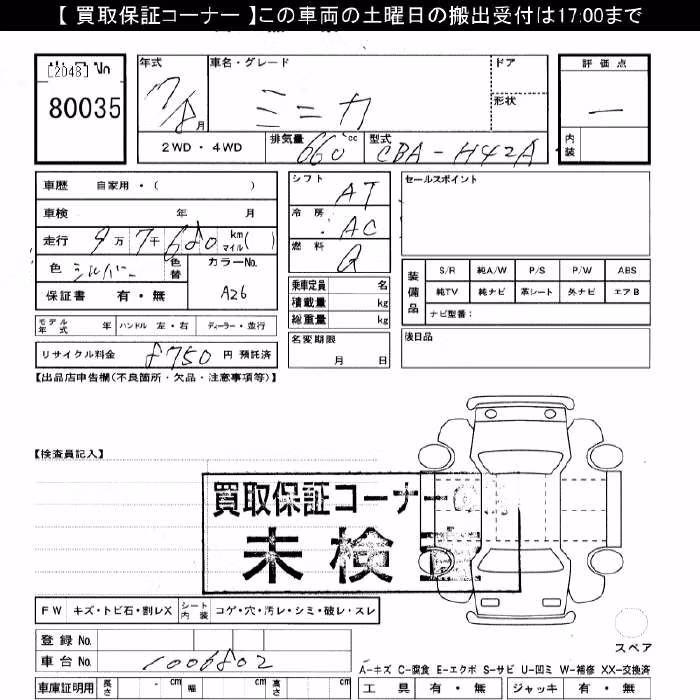 【 買取保証コーナー 】この車両の土曜日の搬出受付は17:00まで
[2048]
80035
年式
17/8月
車名・グレード
ミニカ
ドア
形状
評価点
—
内装
2WD ・ 4WD
排気量 660cc
型式 CBA-H42A
車歴 自家用・( )
車検 年 月
走行 9万7千680 km マイル ( )
色 シルバー 色替
カラーNo. A26
保証書 有・無
シフト AT
冷房 AC
燃料 G
乗車定員 名
積載量 kg
総重量 kg
名変期限 月 日
モデル年式 年 ハンドル 左・右 ディーラー・並行
リサイクル料金 8750 円 預託済
セールスポイント
装備品
S/R 純A/W P/S P/W ABS
純TV 純ナビ 革シート 外ナビ エアB
ナビ型番:
後日品
【出品店申告欄(不良箇所・欠品・注意事項等)】
【検査員記入】
買取保証コーナー
未検
FW キズ・トビ石・割レX シート内装 コゲ・穴・汚レ・シミ・破レ・スレ
登録No.
車台No. 1006802
スペア
A-キズ C-腐食 E-エクボ S-サビ U-凹ミ W-補修 XX-交換済
車庫証明用 長さ - cm 幅 cm 高さ cm
工具 有・無 ジャッキ 有・無